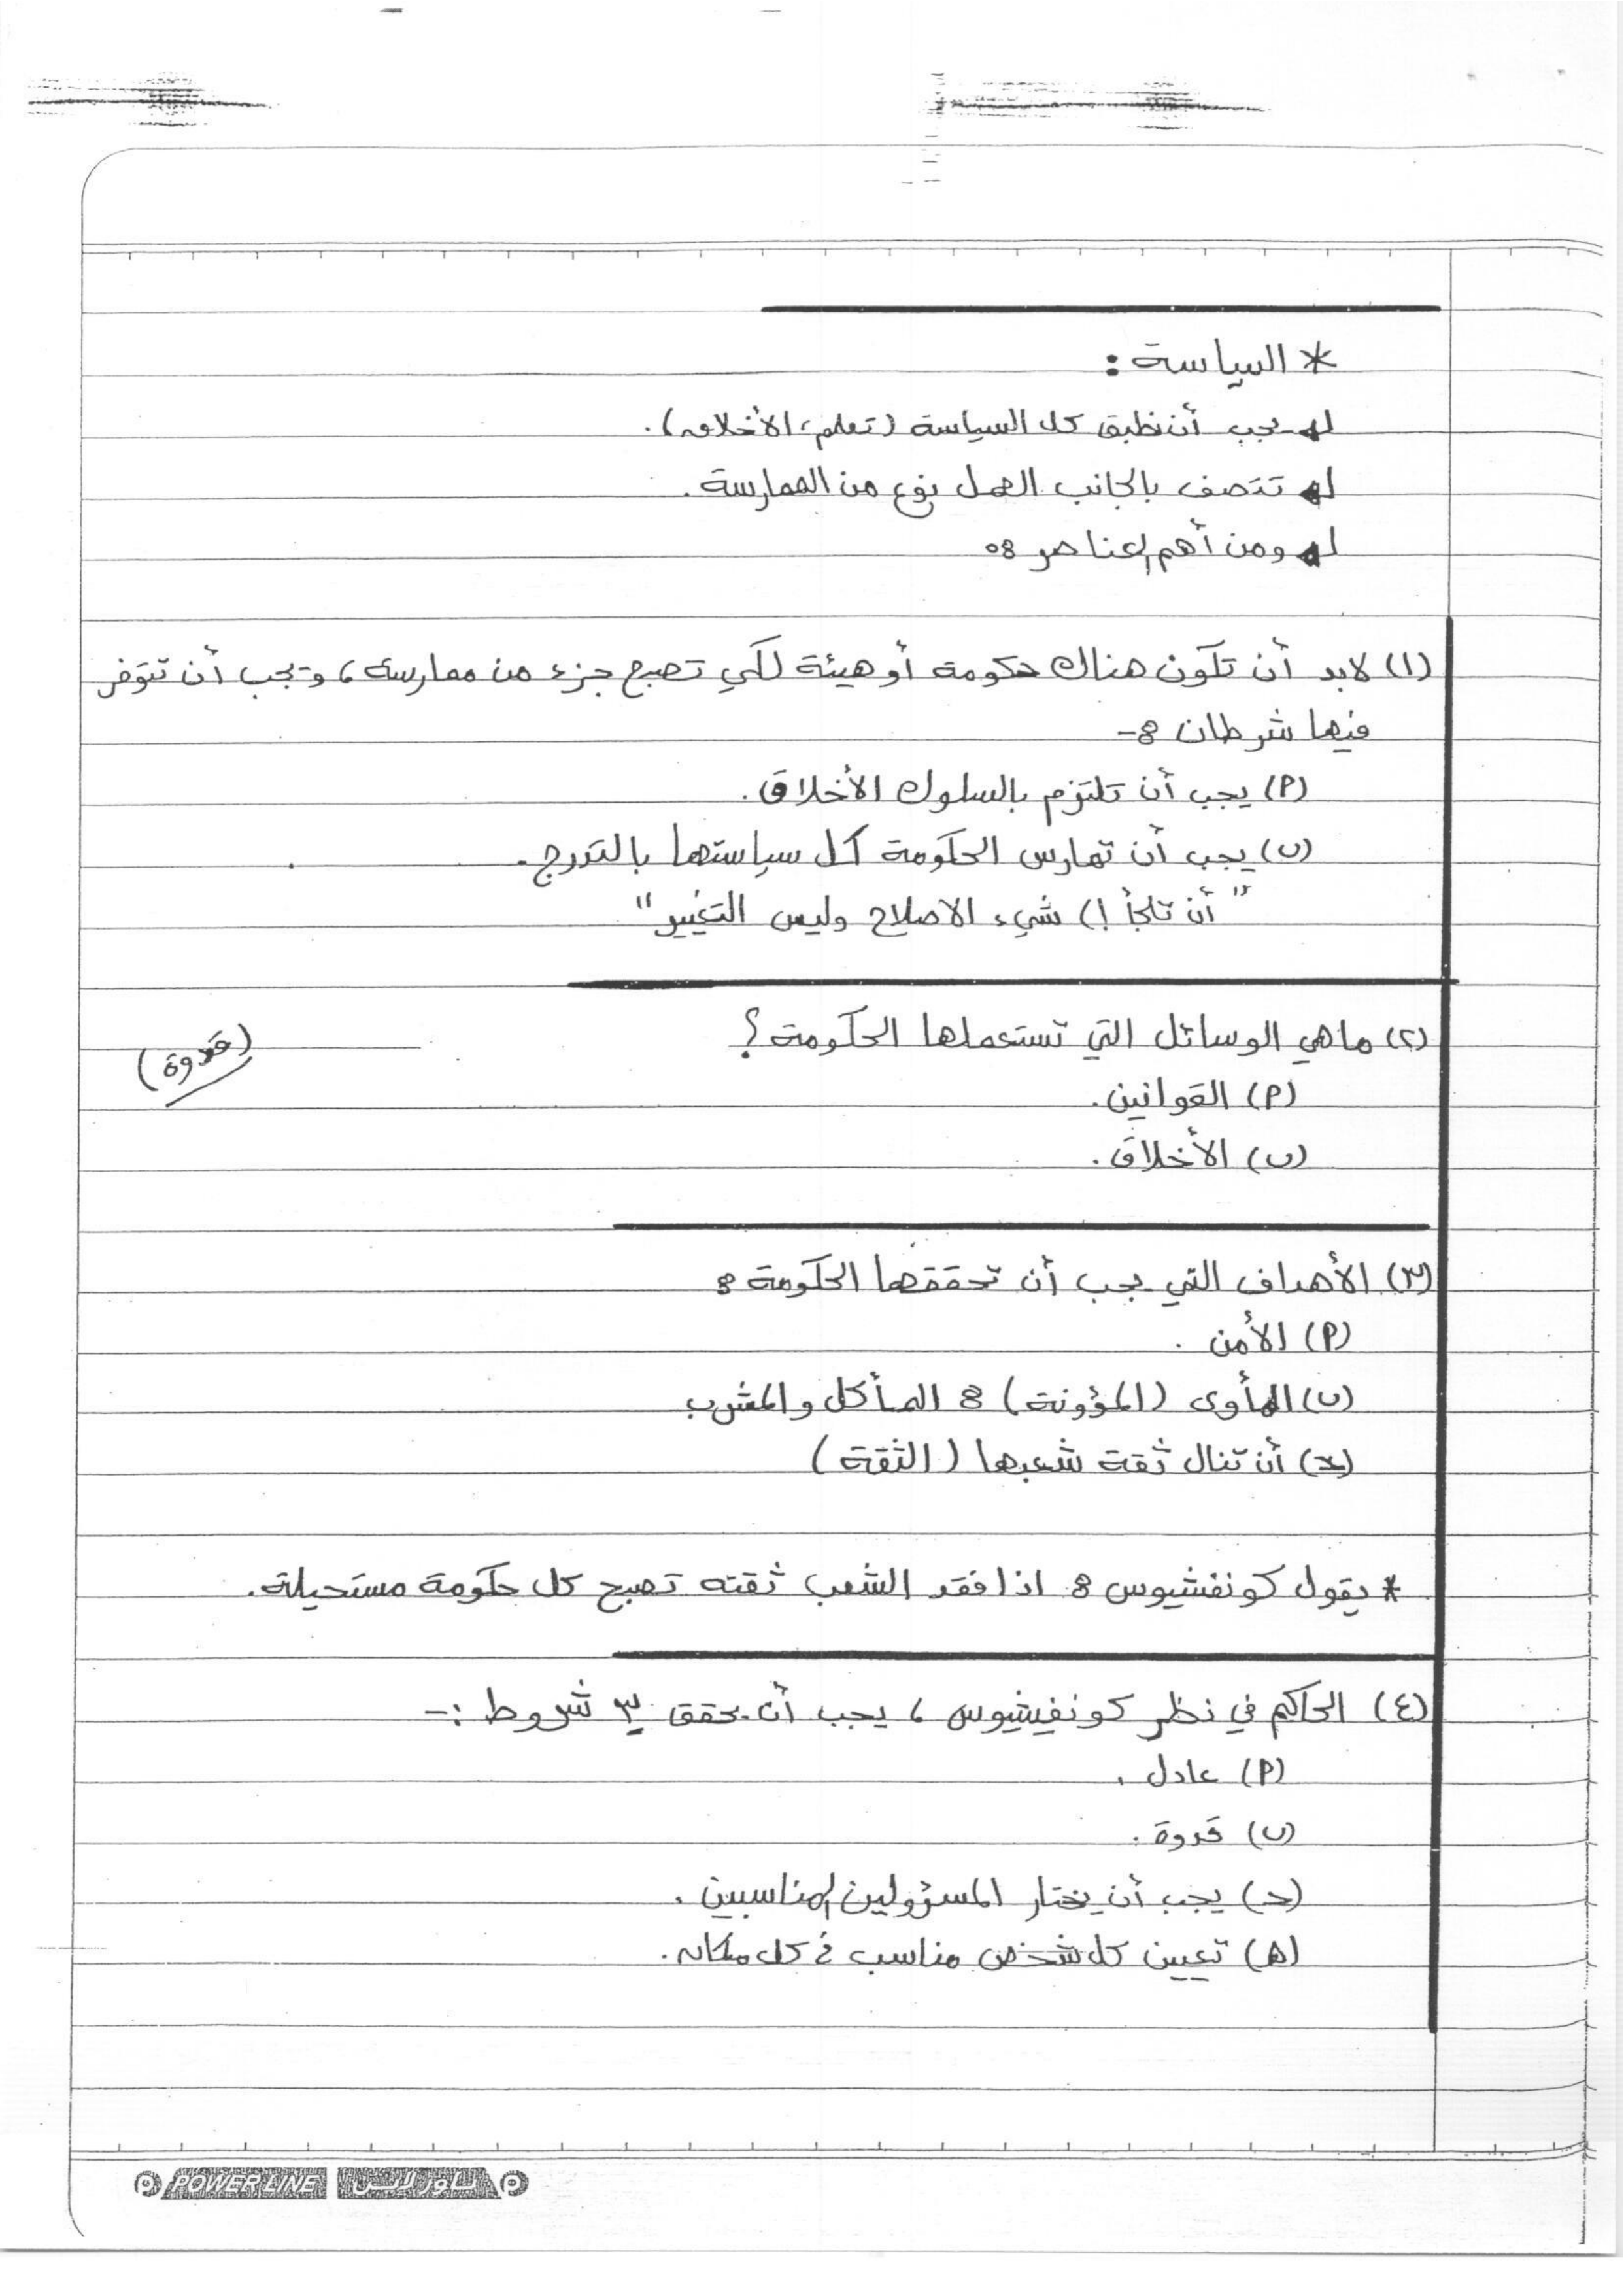 * السياسة :
يجب أن نطبق كل السياسة (تعلم، الأخلاق).
تتصف بالجانب العمل نوع من الممارسة.
ومن أهم العناصر :
(١) لابد أن تكون هناك حكومة أو هيئة لكي تصبح جزء من ممارسة، ويجب أن تتوفر
فيها شرطان :-
(أ) يجب أن تلتزم بالسلوك الأخلاق.
(ب) يجب أن تمارس الحكومة كل سياستها بالتدرج.
"أن تلجأ إلى شيء الاصلاح وليس التغيير"
(٢) ماهي الوسائل التي تستعملها الحكومة؟
(قدوة)
(أ) القوانين.
(ب) الأخلاق.
(٣) الأهداف التي يجب أن تحققها الحكومة :
(أ) الأمن.
(ب) المأوى (المؤونة) : المأكل والمشرب
(ج) أن تنال ثقة شعبها (الثقة)
* يقول كونفشيوس : اذا فقد الشعب ثقته تصبح كل حكومة مستحيلة.
(٤) الحاكم في نظر كونفيشيوس، يجب أن يحقق ٣ شروط :-
(أ) عادل.
(ب) قدوة.
(ج) يجب أن يختار المسؤولين المناسبين.
(ه) تعيين كل شخص مناسب في كل مكانه.
POWER LINE باور لايـن